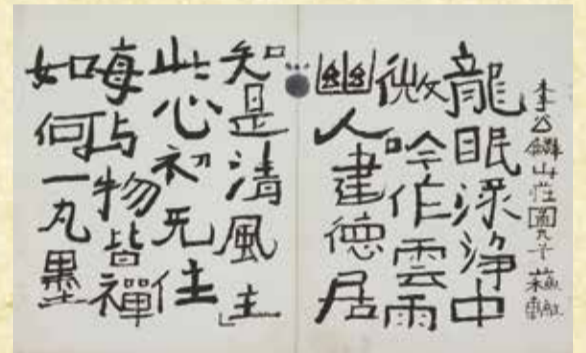 李公麟山莊圖二十 蘇轍
龍眠淥淨中
微吟作雲雨
幽人建德居
知是清風主」
此心初无住
每与物皆禪
如何一丸墨